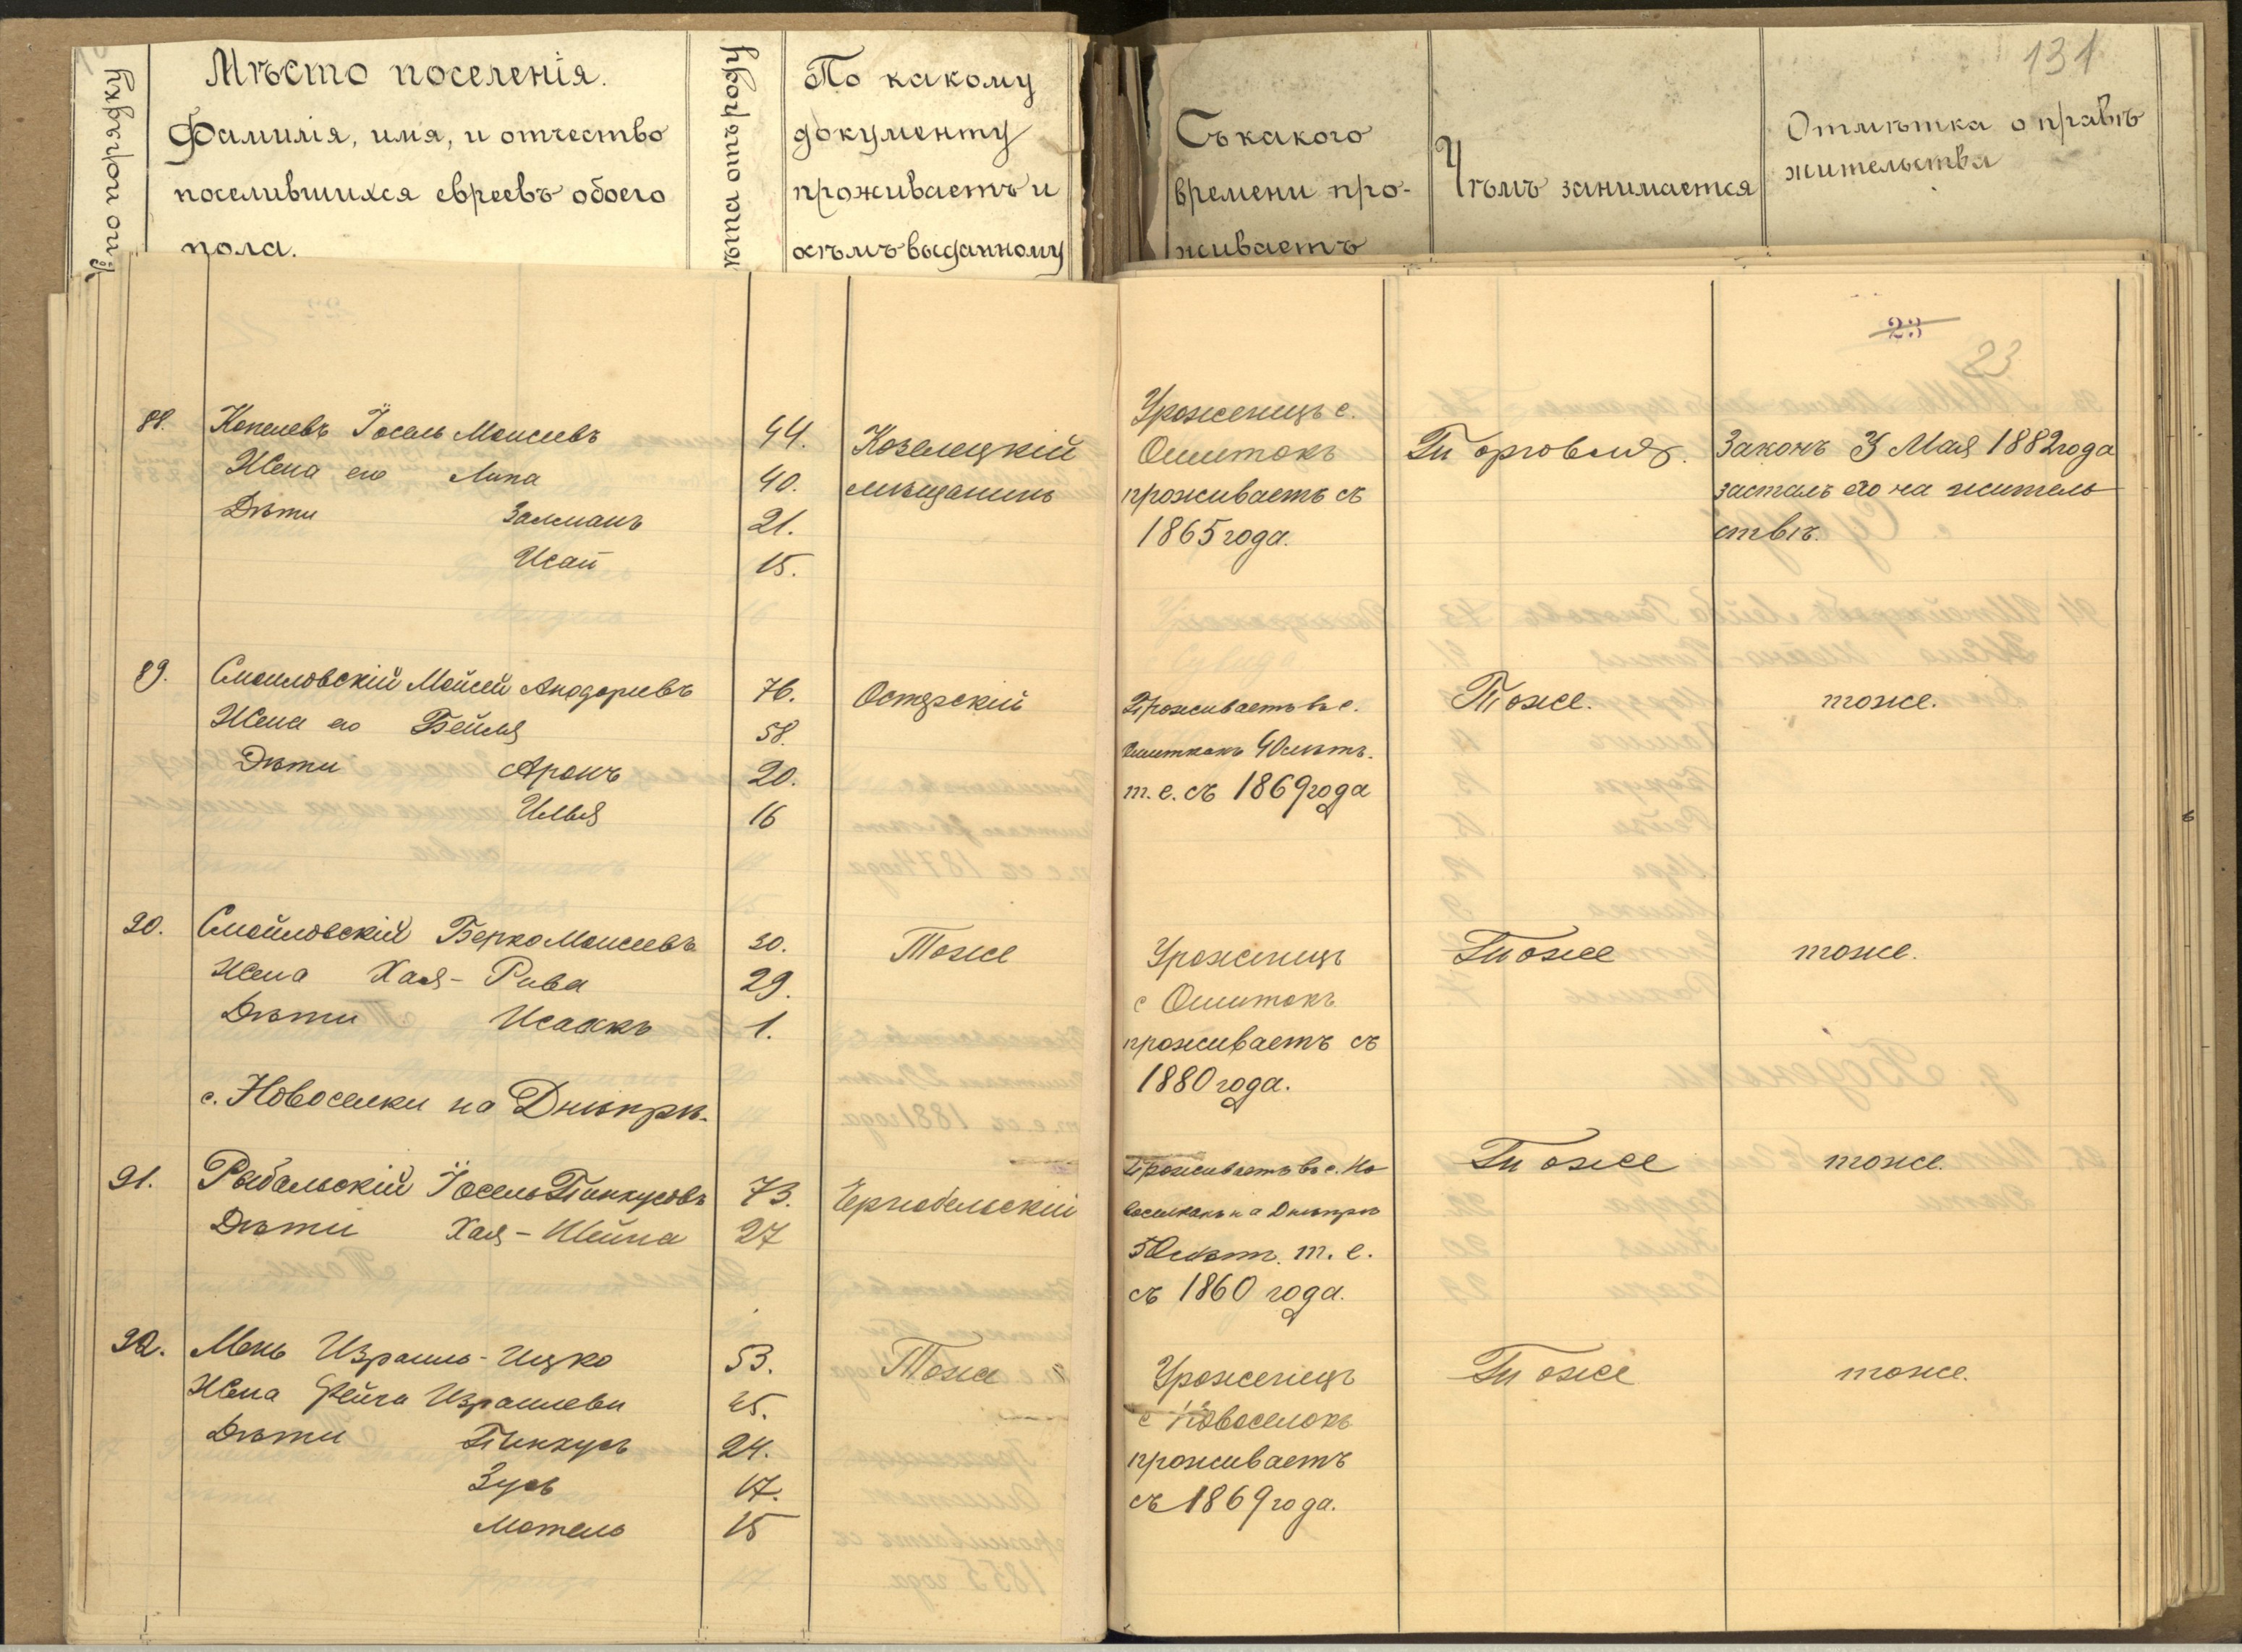 по порядку
Мѣсто поселенія.
Фамилія, имя, и отчество
поселившихся евреевъ обоего
пола.
лѣта отъ роду
По какому
документу
проживаетъ и
кѣмъ выданному
Съ какого
времени про-
живаетъ
Чѣмъ занимается
Отмѣтка о правѣ
жительства
131
23
23
88.
Копелевъ Іосель Моисеевъ 44.
Жена его Липа 40.
Дѣти Залманъ 21.
Исай 15.
Козелецкій
мѣщанинъ
Уроженецъ с.
Ошитокъ
проживаетъ съ
1865 года.
Торговля.
Законъ 3 Мая 1882 года
засталъ его на житель
ствѣ.
89.
Смоиловскій Мойсей 76.
Жена его Бейля 58.
Дѣти Аронъ 20.
Илья 16
Остерскій
Проживаетъ въ с.
Ошиткахъ 40 лѣтъ.
т. е. съ 1869 года
Тоже.
тоже.
90.
Смойловскій Берко Моисеевъ 30.
Жена Хая-Рива 29.
Дѣти Исаакъ 1.
Тоже
Уроженецъ
с Ошитокъ
проживаетъ съ
1880 года.
Тоже
тоже.
с. Новоселки на Днѣпрѣ.
91.
Рыбальскій Іосель Пинкусовъ 73.
Дѣти Хая-Шейна 27
Чернобыльскій
Проживаетъ въ с. Но
воселкахъ на Днѣпрѣ
50 лѣтъ. т. е.
съ 1860 года.
Тоже
тоже.
92.
Мень Израиль-Ицко 53.
Жена Фейга Израилева 45.
Дѣти Пинхусъ 24.
Зусь 17.
Мотель 15
Тоже
Уроженецъ
с Новоселокъ
проживаетъ
съ 1869 года.
Тоже
тоже.